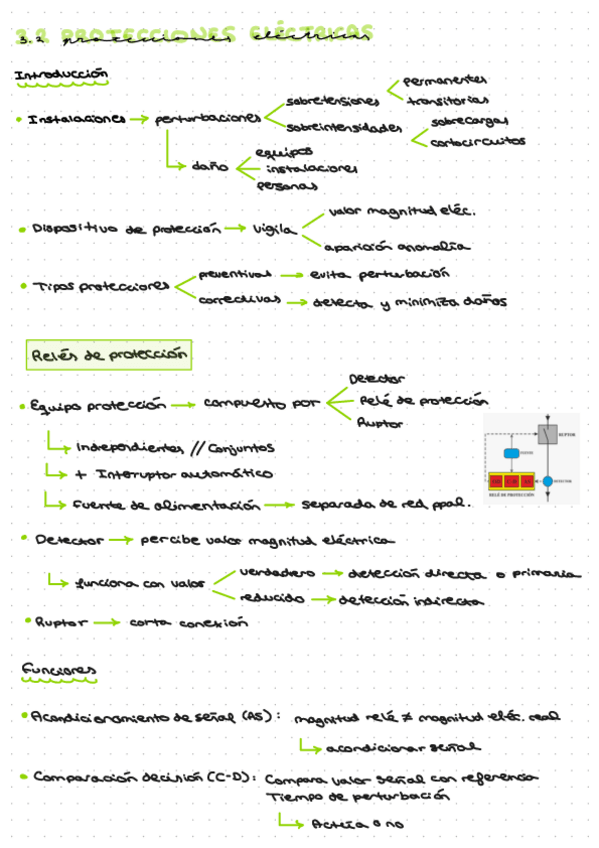 3.2 PROTECCIONES ELÉCTRICAS
Introducción
• Instalaciones → perturbaciones
sobretensiones
permanentes
transitorias
sobreintensidades
sobrecargas
cortocircuitos
daño
equipos
instalaciones
personas
• Dispositivo de protección → vigila
valor magnitud eléc.
aparición anomalía
• Tipos protecciones
preventivas → evita perturbación
correctivas → detecta y minimiza daños
Relés de protección
• Equipo protección → compuesto por
Detector
Relé de protección
Ruptor
Independientes // Conjuntos
+ Interruptor automático
Fuente de alimentación → separada de red ppal.
RUPTOR
DETECTOR
RELÉ DE PROTECCIÓN
• Detector → percibe valor magnitud eléctrica
funciona con valor
verdadero → detección directa o primaria
reducido → detección indirecta
• Ruptor → corta conexión
Funciones
• Acondicionamiento de señal (AS): magnitud relé ≠ magnitud eléc. real
acondicionar señal
• Comparación decisión (C-D): Compara valor señal con referencia
Tiempo de perturbación
Actúa o no